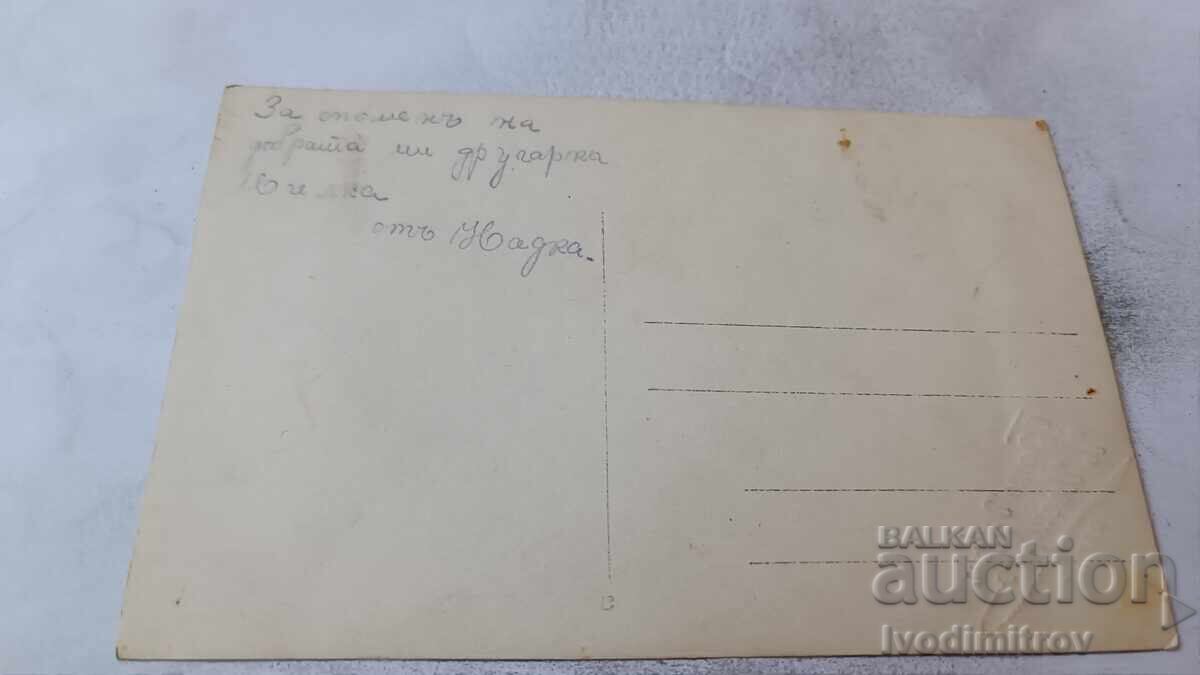 За споменъ на
добрата ми другарка
отъ Надка.
B
BALKAN
auction
Ivodimitrov